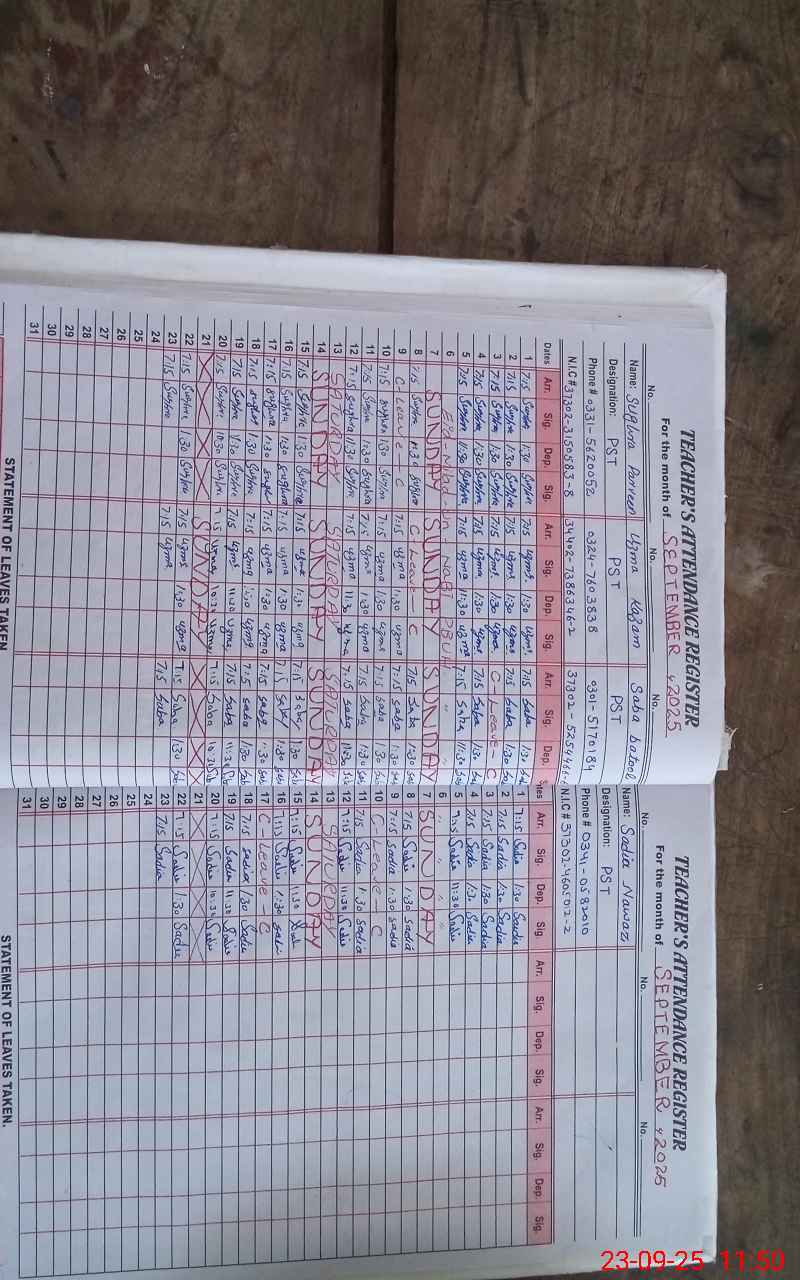 TEACHER'S ATTENDANCE REGISTER
For the month of SEPTEMBER, 2025
No. No. No.
Name: Sughra Parveen Uzma Kazam Saba batool
Designation: PST PST PST
Phone # 0331-5620052 0324-7603838 0301-5170184
N.I.C # 37302-3150583-8 34402-7386346-2 37302-5254446-
Dates Arr. Sig. Dep. Sig. Arr. Sig. Dep. Sig. Arr. Sig. Dep. S
1 7:15 Sughra 1:30 Sughra 7:15 uzma 1:30 uzma 7:15 Saba 1:30
2 7:15 Sughra 1:30 Sughra 7:15 uzma 1:30 uzma 7:15 Saba 1:30
3 7:15 Sughra 1:30 Sughra 7:15 uzma 1:30 uzma C-Leave-C
4 7:15 Sughra 1:30 Sughra 7:15 uzma 1:30 uzma 7:15 Saba 1:30
5 7:15 Sughra 11:30 Sughra 7:15 uzma 11:30 uzma 7:15 Saba 11:30
6 Eid-Milad-un-Nabi PBUH " "
7 SUNDAY SUNDAY SUNDAY
8 7:15 Sughra 1:30 Sughra C-Leave-C 7:15 Saba 1:30
9 C-Leave-C 7:15 uzma 1:30 uzma 7:15 saba 1:30
10 7:15 Sughra 1:30 Sughra 7:15 uzma 1:30 uzma 7:15 saba 1:30
11 7:15 Sughra 1:30 Sughra 7:15 uzma 1:30 uzma 7:15 Saba 1:30
12 7:15 Sughra 11:30 Sughra 7:15 uzma 11:30 uzma 7:15 saba 11:30
13 SATURDAY SATURDAY SATURDAY
14 SUNDAY SUNDAY SUNDAY
15 7:15 Sughra 1:30 Sughra 7:15 uzma 1:30 uzma 7:15 saba 1:30
16 7:15 Sughra 1:30 Sughra 7:15 uzma 1:30 uzma 7:15 saba 1:30
17 7:15 Sughra 1:30 Sughra 7:15 uzma 1:30 uzma 7:15 saba 1:30
18 7:15 Sughra 1:30 Sughra 7:15 uzma 1:30 uzma 7:15 saba 1:30
19 7:15 Sughra 11:30 Sughra 7:15 uzma 11:30 uzma 7:15 Saba 11:30
20 7:15 Sughra 10:30 Sughra 7:15 uzma 10:30 uzma 7:15 Saba 10:30
21 SUNDAY
22 7:15 Sughra 1:30 Sughra 7:15 uzma 1:30 uzma 7:15 Saba 1:30
23 7:15 Sughra 7:15 uzma 7:15 Saba
24
25
26
27
28
29
30
31
STATEMENT OF LEAVES TAKEN
TEACHER'S ATTENDANCE REGISTER
For the month of SEPTEMBER, 2025
No. No. No.
Name: Sadia Nawaz
Designation: PST
Phone # 0341-0582010
N.I.C # 37302-460502-2
tes Arr. Sig. Dep. Sig. Arr. Sig. Dep. Sig. Arr. Sig. Dep. Sig.
1 7:15 Sadia 1:30 Sadia
2 7:15 Sadia 1:30 Sadia
3 7:15 Sadia 1:30 Sadia
4 7:15 Sadia 1:30 Sadia
5 7:15 Sadia 11:30 Sadia
6 " " " "
7 SUNDAY
8 7:15 Sadia 1:30 Sadia
9 7:15 Sadia 1:30 Sadia
10 C-Leave-C
11 7:15 Sadia 1:30 Sadia
12 7:15 Sadia 11:30 Sadia
13 SATURDAY
14 SUNDAY
15 7:15 Sadia 1:30 Sadia
16 7:15 Sadia 1:30 Sadia
17 C-Leave-C
18 7:15 sadia 1:30 Sadia
19 7:15 Sadia 11:30 Sadia
20 7:15 Sadia 10:30 Sadia
21
22 7:15 Sadia 1:30 Sadia
23 7:15 Sadia
24
25
26
27
28
29
30
31
STATEMENT OF LEAVES TAKEN.
23-09-25 11:50